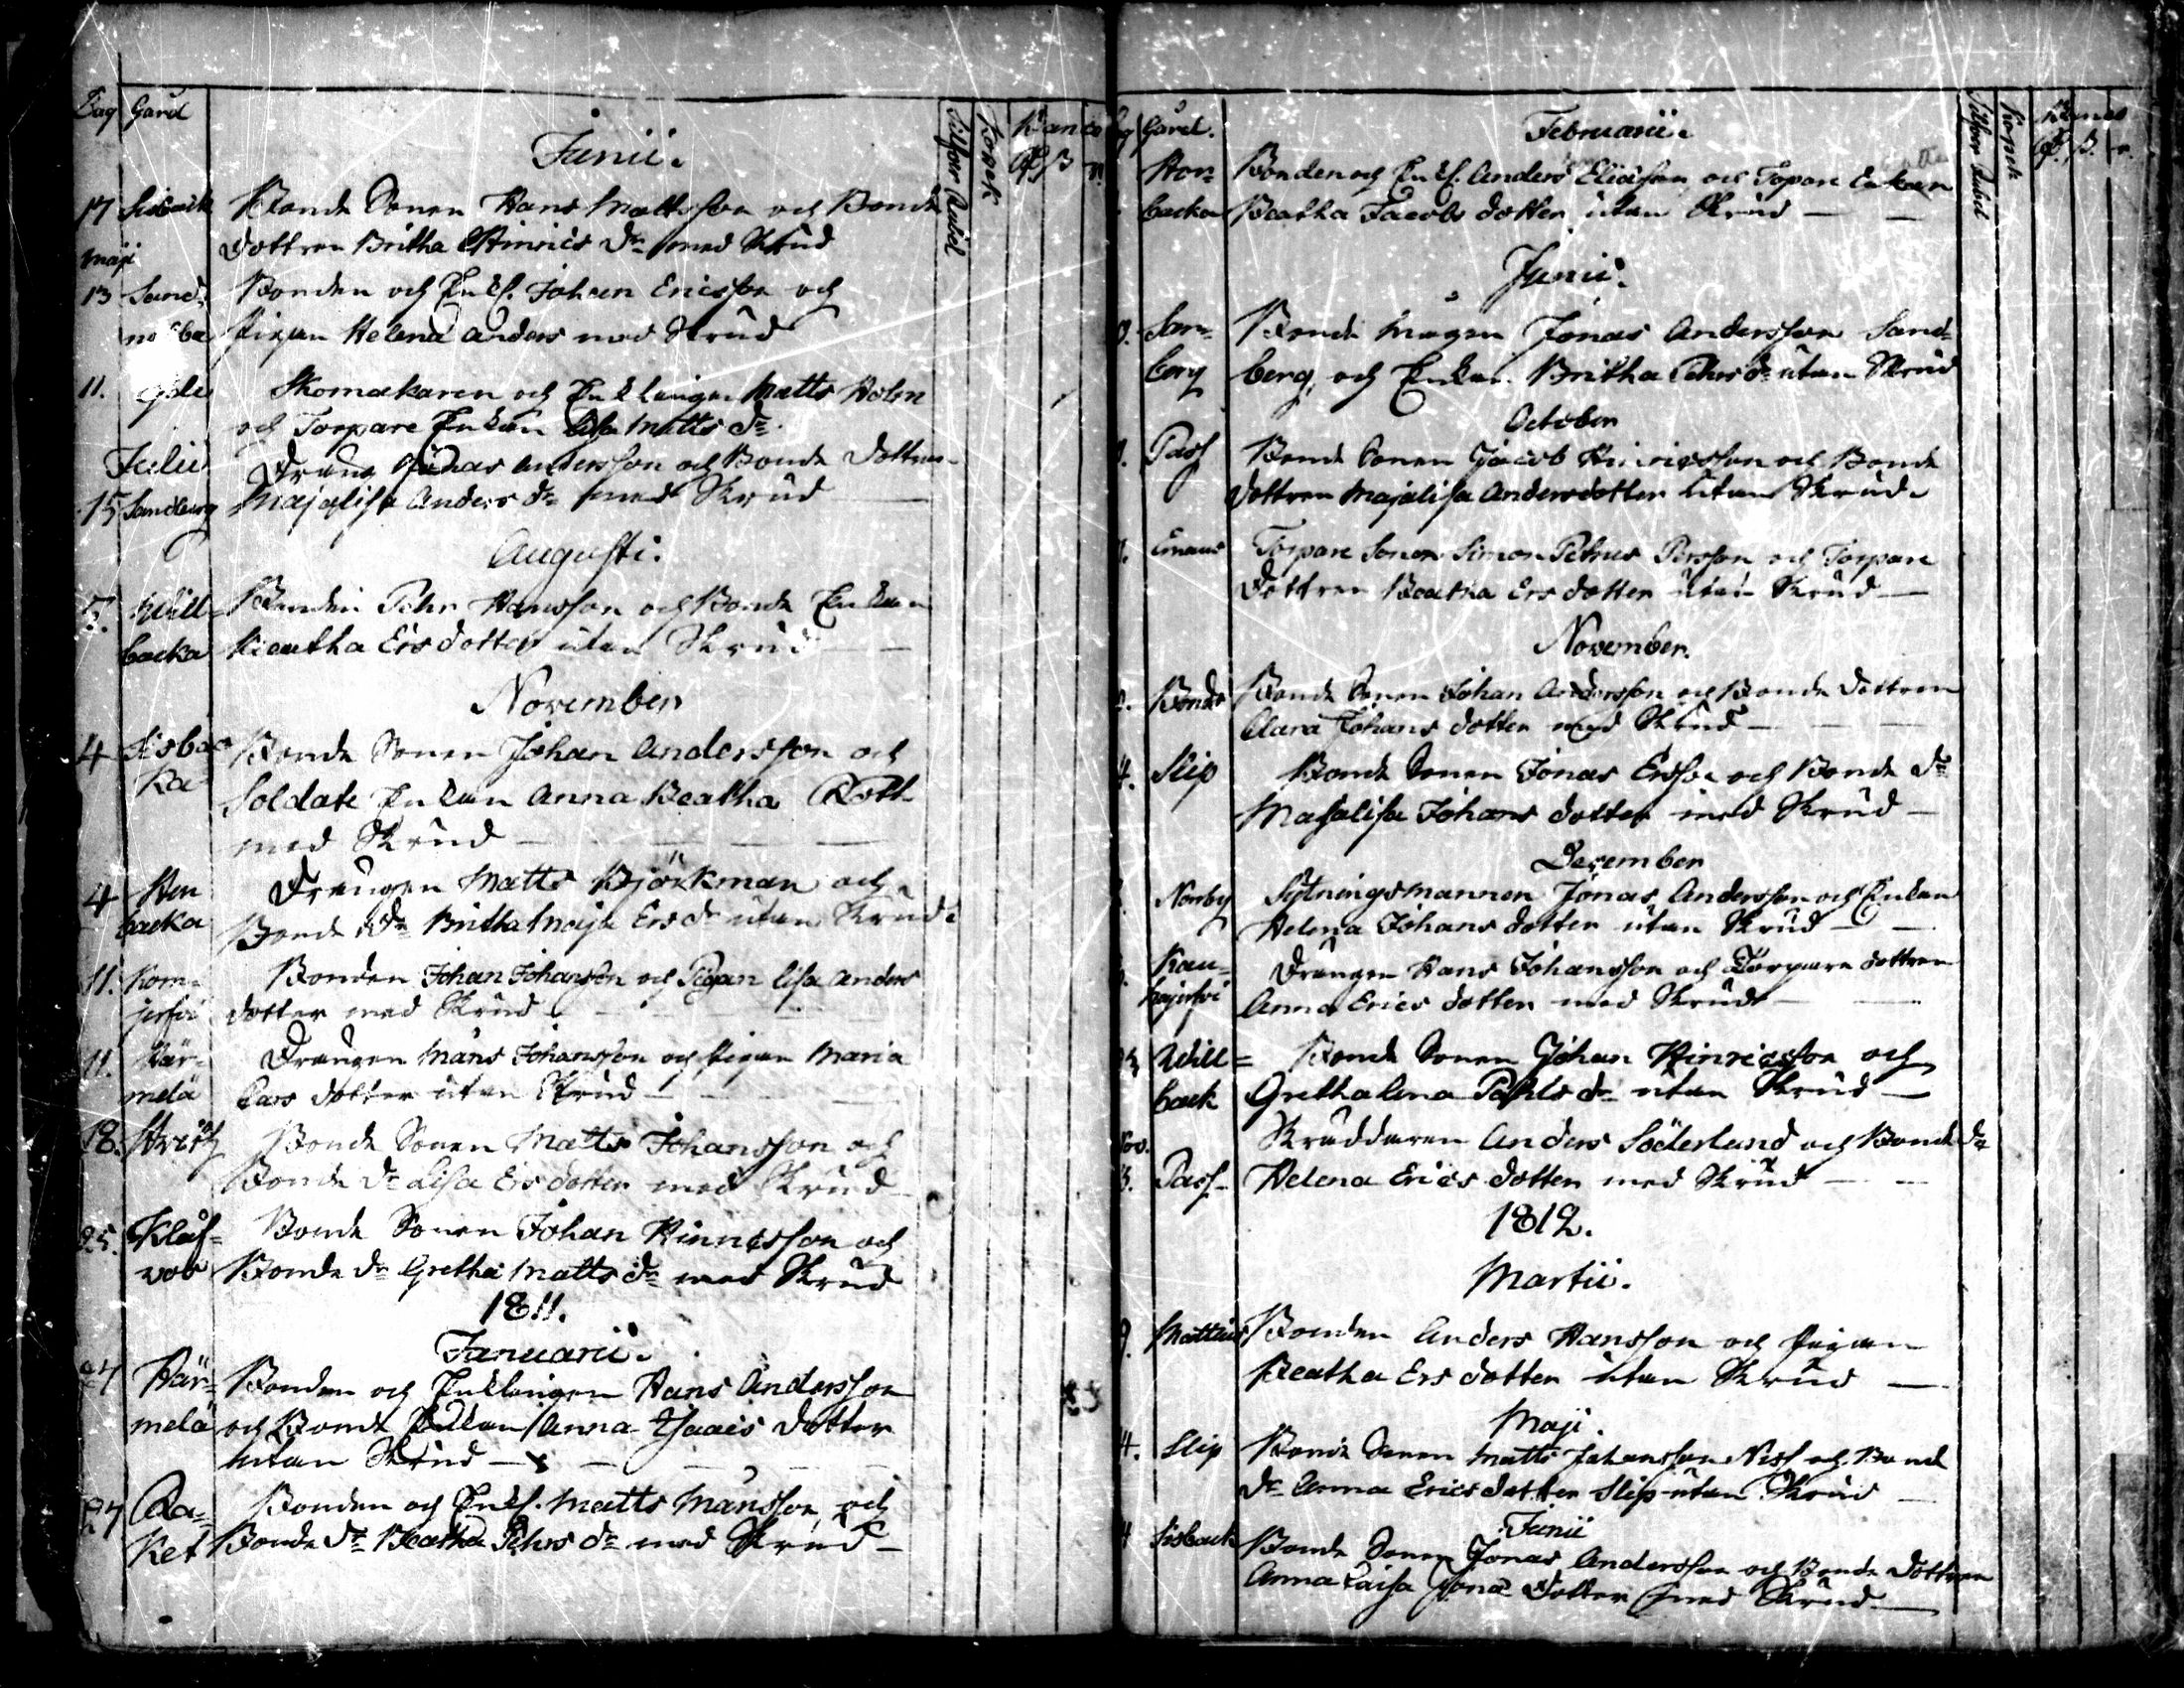 Dag Gård
Silfver Rubel Kopek Banco
Rd ß r.
Junii.
17 Sisback Bonde Sonen Hans Mattsson och Bonde
Dottren Britha Hinrics dr med Skrud
Maji
13 Sand- Bonden och Enkl. Johan Ericsson och
Pigan Helena Anders med Skrud
11. Skomakaren och Enklingen Matts Holm
och Torpare Enkan Lisa Matts dr
Julii Dräng Jonas Andersson och Bonde Dottren
15 Sandberg Majalisa Anders dr med Skrud
Augusti.
5. Will- Bonden Pehr Hansson och Bonde Enkan
backa Beatha Ersdotter utan Skrud
November
4 Sisbac- Bonde Sonen Johan Andersson och
ka Soldate Enkan Anna Beatha Rott
med Skrud
4 Hen Drängen Matts Björkman och
backa Bonde dr Britha Maja Ers dr utan Skrud
11. Kom- Bonden Johan Johansson och Pigan Lisa Anders
jerfvi dotter med Skrud
11. Här- Drängen Måns Johansson och Pigan Maria
mälä Lars dotter utan Skrud
18. Bonde Sonen Matts Johansson och
Bonde dr Lisa Ersdotter med Skrud
25. Klåf- Bonde Sonen Johan Hinricsson och
vos Bonde dr Gretha Matts dr med Skrud
1811.
Januarii.
27 Här- Bonden och Enklingen Hans Andersson
melä och Bonde Enkan Anna Isaacs dotter
utan Skrud
27 Ra- Bonden och Enkl. Matts Månsson och
ket Bonde dr Beatha Pehrs dr med Skrud
Gård.
Silfver Rubel Kopek Banco
Rd. ß. r.
Februarii.
Hon- Bonden och Enkl. Anders Eliasson och Torpare Enkan
backa Beatha Jacobs dotter utan Skrud
Junii.
San- Bonde Mågen Jonas Andersson Sand-
berg berg, och Enkan Britha Pehrs dr utan Skrud
October
Pass Bonde Sonen Jacob Hinricsson och Bonde
Dottren Majalisa Andersdotter utan Skrud.
Emaus Torpare Sonen Simon Petrus Persson och Torpare
Dottren Beatha Ersdotter utan Skrud
November.
Bonds Bonde Sonen Johan Andersson och Bonde Dottren
Clara Johans dotter med Skrud
4. Slip Bonde Sonen Jonas Ersson och Bonde dr
Majalisa Johans dotter med Skrud
December
Norrby Sytningsmannen Jonas Andersson och Enkan
Helena Johans dotter utan Skrud
Kau- Drängen Hans Johansson och Torpare dottren
hajerfvi Anna Erics dotter med Skrud
Will- Bonde Sonen Johan Hinricsson och
back Grethalena Påhls dr utan Skrud
Nov. Skräddaren Anders Söderlund och Bonde dr
3. Pass Helena Erics dotter med Skrud
1812.
Martii.
9. Mattlais Bonden Anders Hansson och Pigan
Beatha Ers dotter utan Skrud
Maji.
4. Slip Bonde Sonen Matts Johansson Niss och Bonde
dr Anna Ericsdotter Slip utan Skrud
Junii
Sisback Bonde Sonen Jonas Andersson och Bonde Dottren
Anna Caisa Jona dotter med Skrud